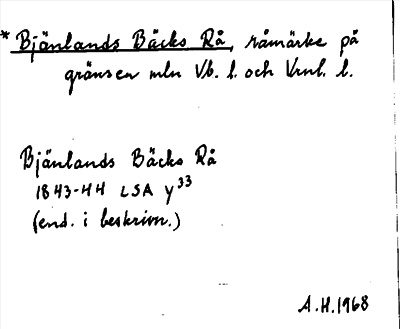 * Bjänlands Bäcks Rå, råmärke på
gränsen mln Vb. l. och Vrnl. l.
Bjänlands Bäcks Rå
1843-44 LSA y33
(end. i beskrivn.)
A.H.1968